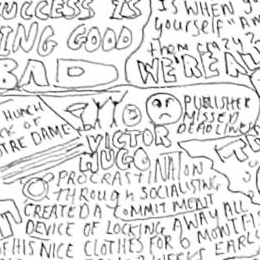 SUCCESS IS
ING GOOD
BAD
IS WHEN
yourself "AW
them crazy
WE'RE
HUNCH
OF
TRE DAME
PUBLISHER
MISSED
DEADLINES
VICTOR
HUGO
PROCRASTINATION
THROUGH SOCIALISING
CREATED A COMMITMENT
DEVICE OF LOCKING AWAY ALL
OF HIS NICE CLOTHES FOR 6 MONTHS
EARLY